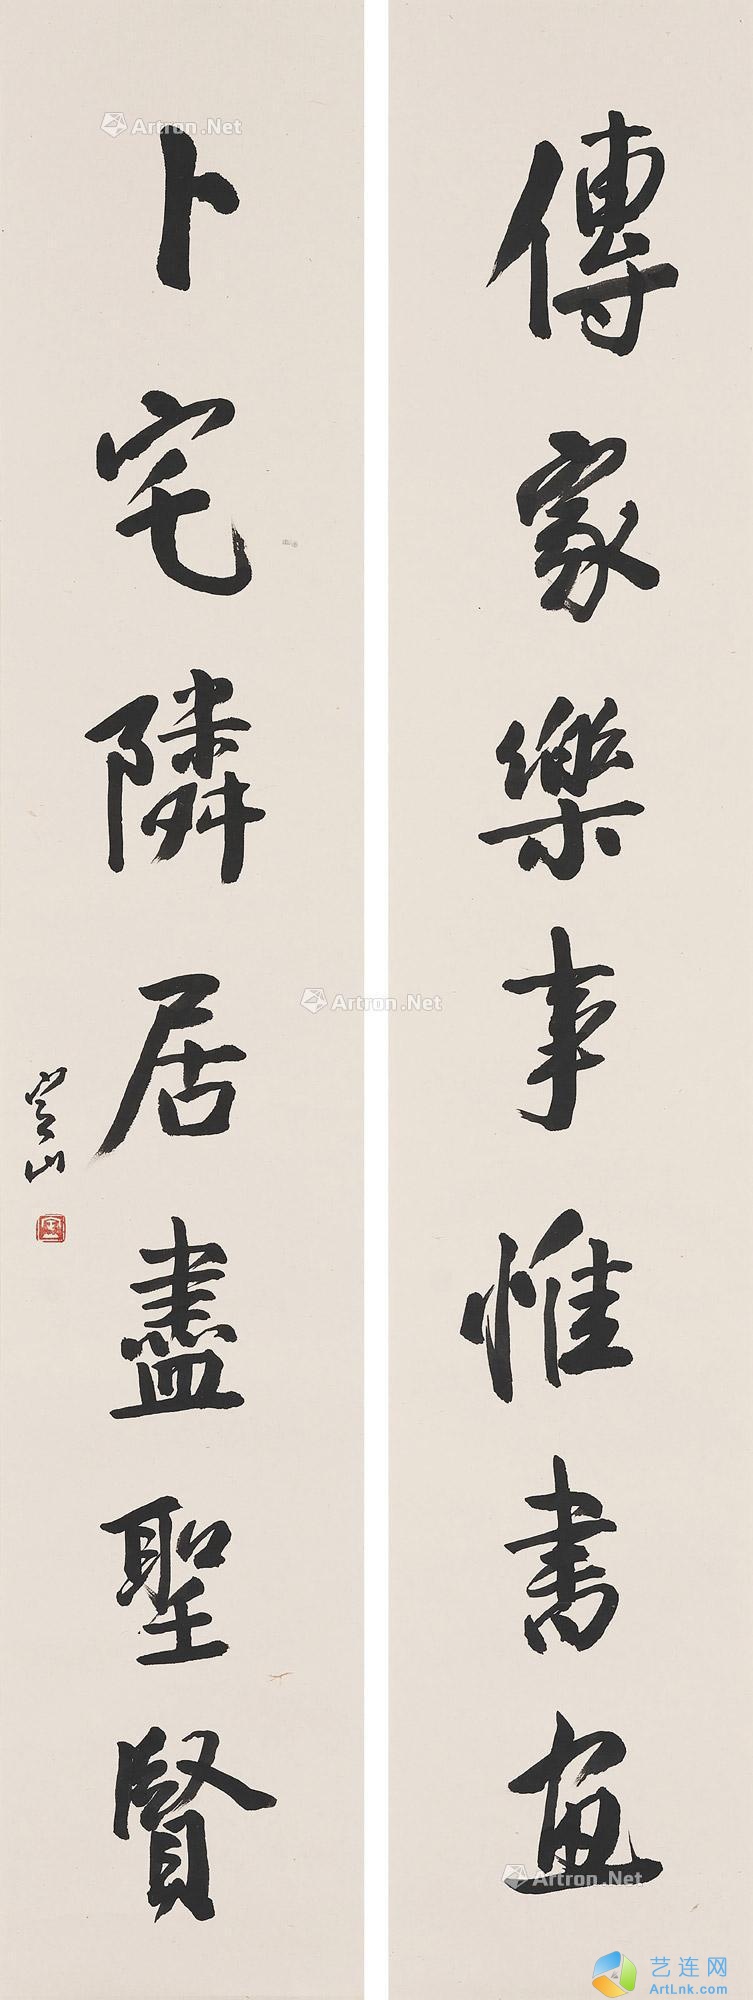 傳家樂事惟書畫
卜宅隣居盡聖賢
Artron.Net
Artron.Net
Artron.Net
艺连网
ArtLnk.com